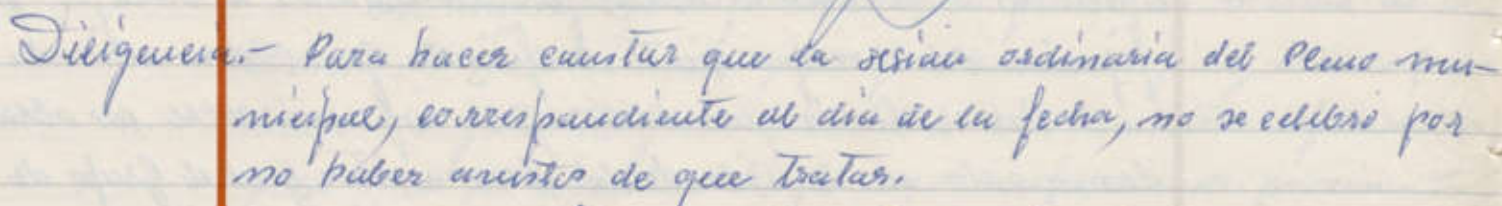 Diligencia.- Para hacer constar que la sesión ordinaria del Pleno mu-
nicipal, correspondiente al día de la fecha, no se celebró por
no haber asuntos de que tratar.